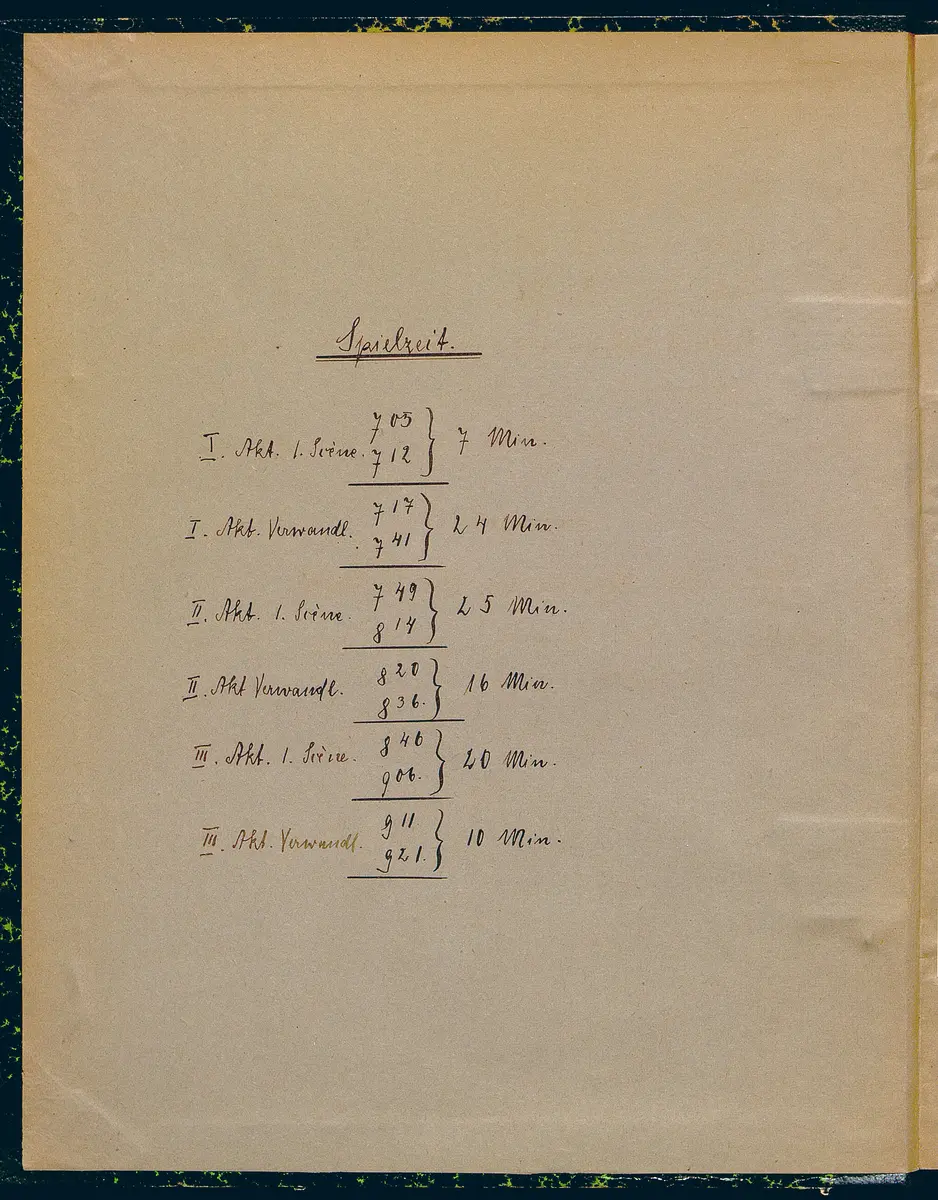 Spielzeit.
7 05
I. Akt. 1. Scène. } 7 Min.
7 12
7 17
I. Akt. Verwandl. } 24 Min.
7 41
7 49
II. Akt. 1. Scène. } 25 Min.
8 14
8 20
II. Akt Verwandl. } 16 Min.
8 36.
8 46
III. Akt. 1. Scène. } 20 Min.
9 06.
9 11
III. Akt. Verwandl. } 10 Min.
9 21.